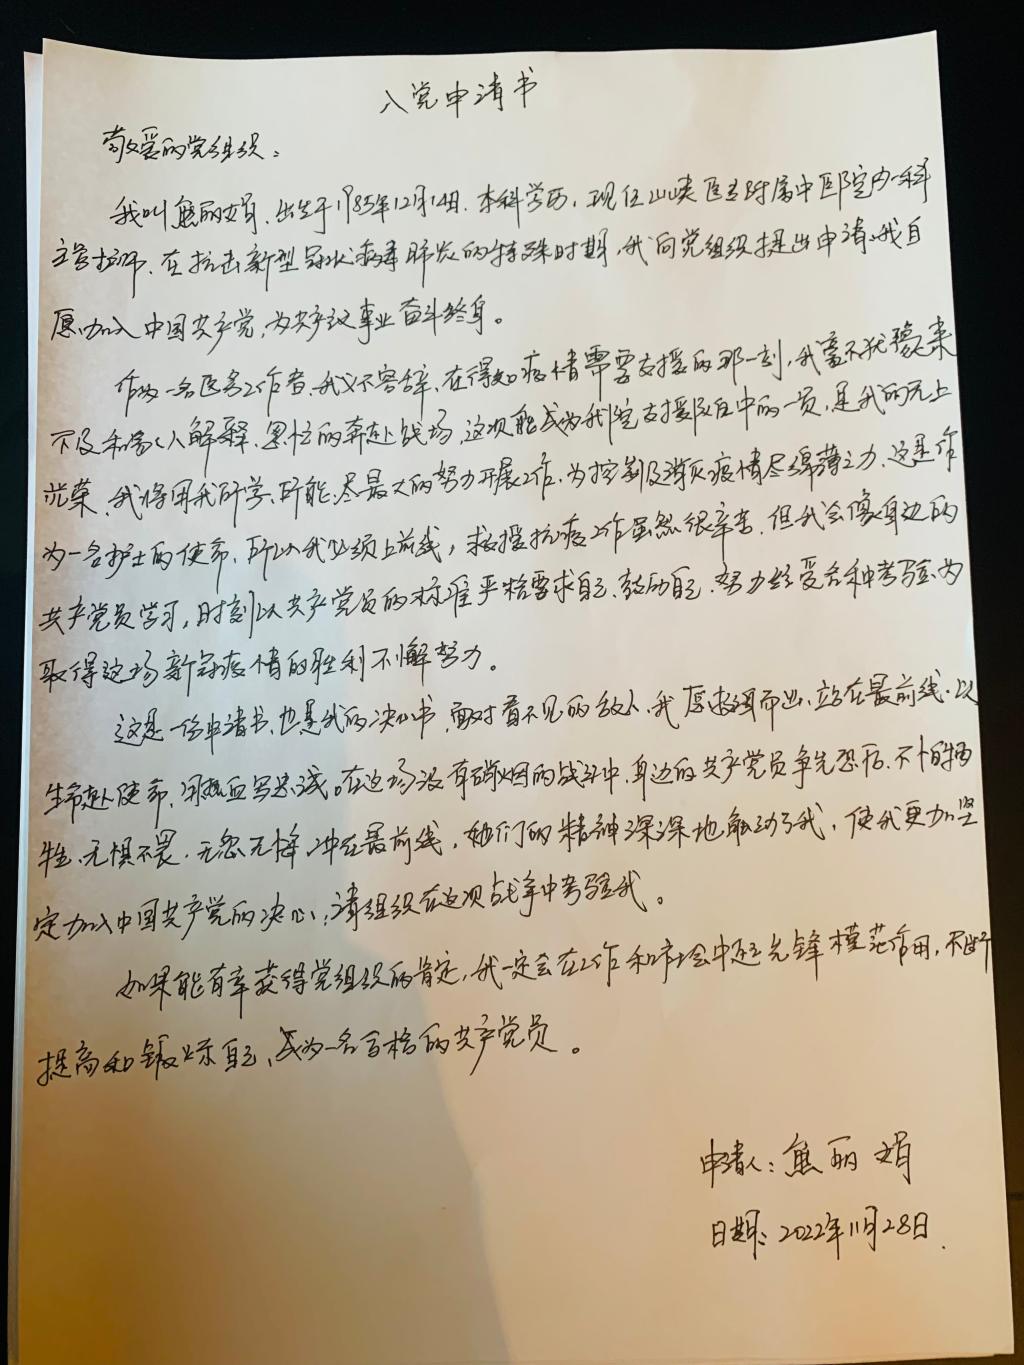 入党申请书
敬爱的党组织：
我叫焦丽娟，出生于1985年12月14日，本科学历，现任山峡医专附属中医院内一科
主管护师，在抗击新型冠状病毒肺炎的特殊时期，我向党组织提出申请，我自
愿加入中国共产党，为共产主义事业奋斗终身。
作为一名医务工作者，我义不容辞，在得知疫情需要支援的那一刻，我毫不犹豫，来
不及和家人解释，匆忙的奔赴战场，这次能成为我院支援队伍中的一员，是我的无上
光荣，我将用我所学、所能，尽最大的努力开展工作，为控制及消灭疫情尽绵薄之力，这是作
为一名护士的使命，所以我必须上前线，救援抗疫工作虽然很辛苦，但我会像身边的
共产党员学习，时刻以共产党员的标准严格要求自己，鼓励自己，努力经受各种考验，为
取得这场新冠疫情的胜利不懈努力。
这是一份申请书，也是我的决心书，面对看不见的敌人，我愿挺身而出，站在最前线，以
生命赴使命，用热血写忠诚。在这场没有硝烟的战斗中，身边的共产党员争先恐后，不怕牺
牲、无惧不畏，无怨无悔，冲在最前线，她们的精神深深地触动了我，使我更加坚
定加入中国共产党的决心，请组织在这次战争中考验我。
如果能有幸获得党组织的肯定，我一定会在工作和社会中起先锋模范作用，不断
提高和锻炼自己，成为一名合格的共产党员。
申请人：焦丽娟
日期：2022年11月28日.